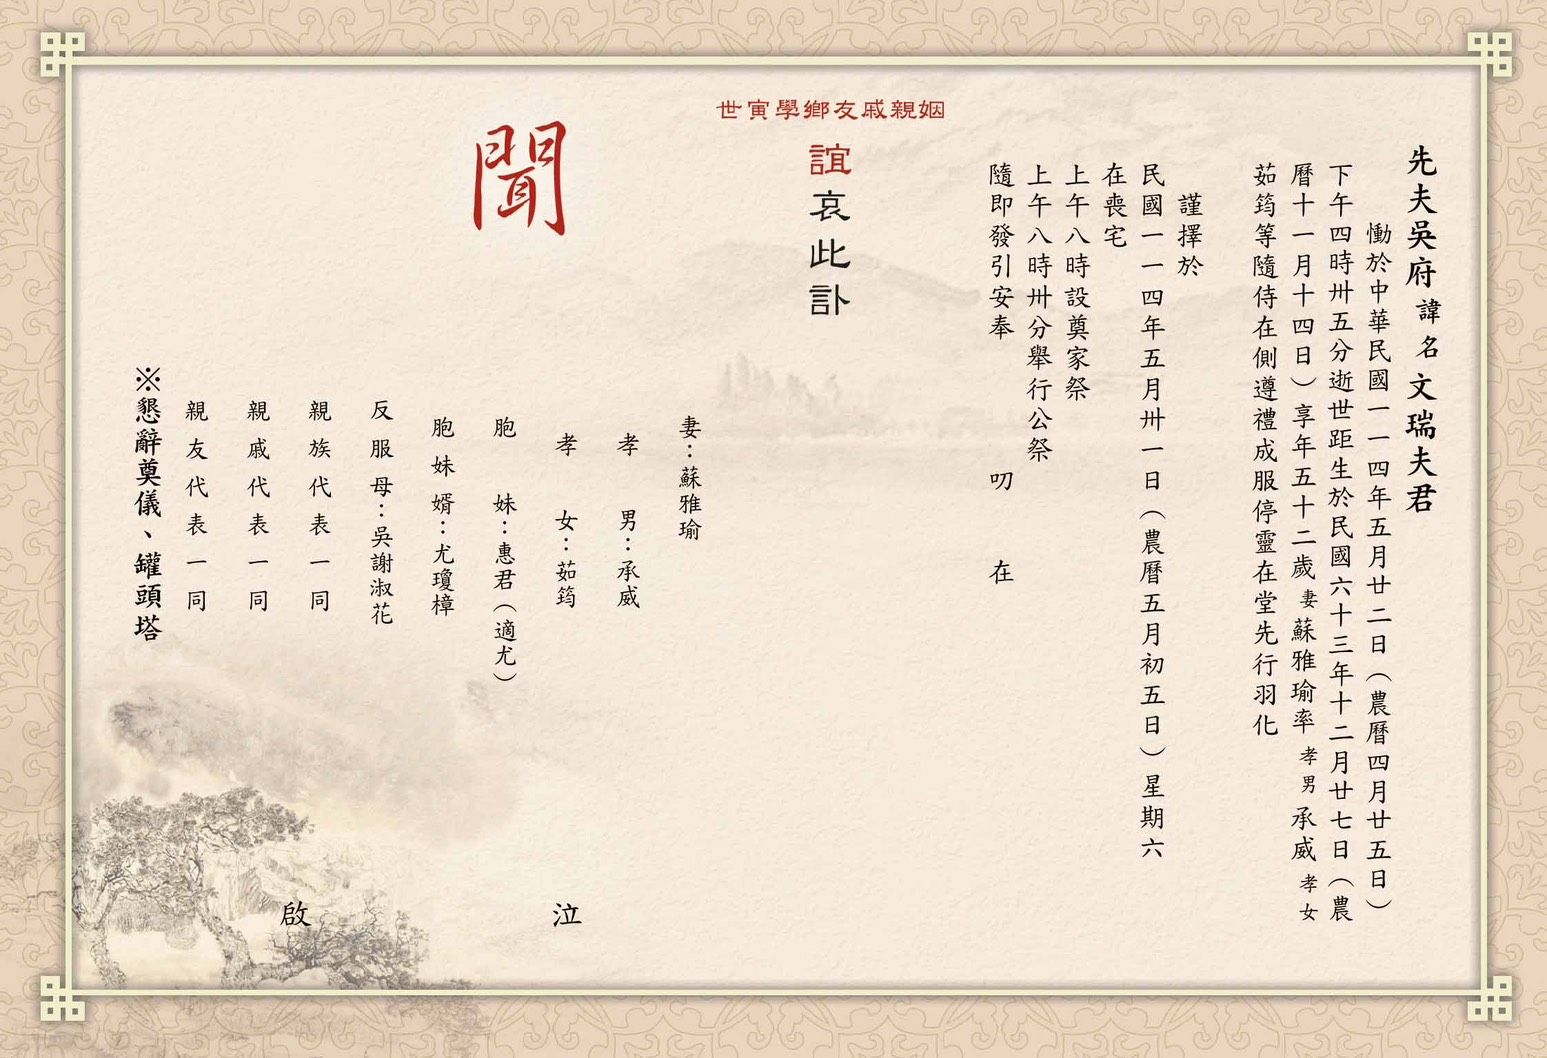 先夫吳府諱名文瑞夫君
慟於中華民國一一四年五月廿二日（農曆四月廿五日）
下午四時卅五分逝世距生於民國六十三年十二月廿七日（農
曆十一月十四日）享年五十二歲妻蘇雅瑜率孝男承威孝女
茹筠等隨侍在側遵禮成服停靈在堂先行羽化
謹擇於
民國一一四年五月卅一日（農曆五月初五日）星期六
在喪宅
上午八時設奠家祭
上午八時卅分舉行公祭
隨即發引安奉　叨　在
姻親戚友鄉學寅世
誼哀此訃
聞
妻：蘇雅瑜
孝男：承威
孝女：茹筠
胞妹：惠君（適尤）
胞妹婿：尤瓊樟
反服母：吳謝淑花
親族代表一同
親戚代表一同
親友代表一同
泣
啟
※懇辭奠儀、罐頭塔